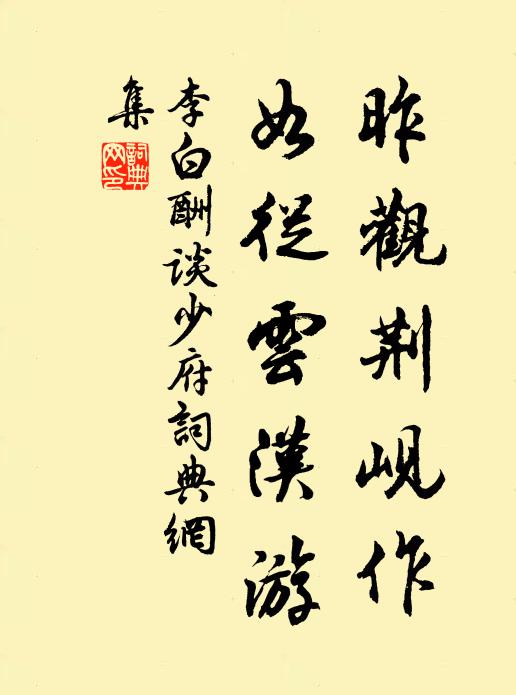 昨觀荆峴作
如從雲漢游
李白酬談少府詞典網
集
詞典網印